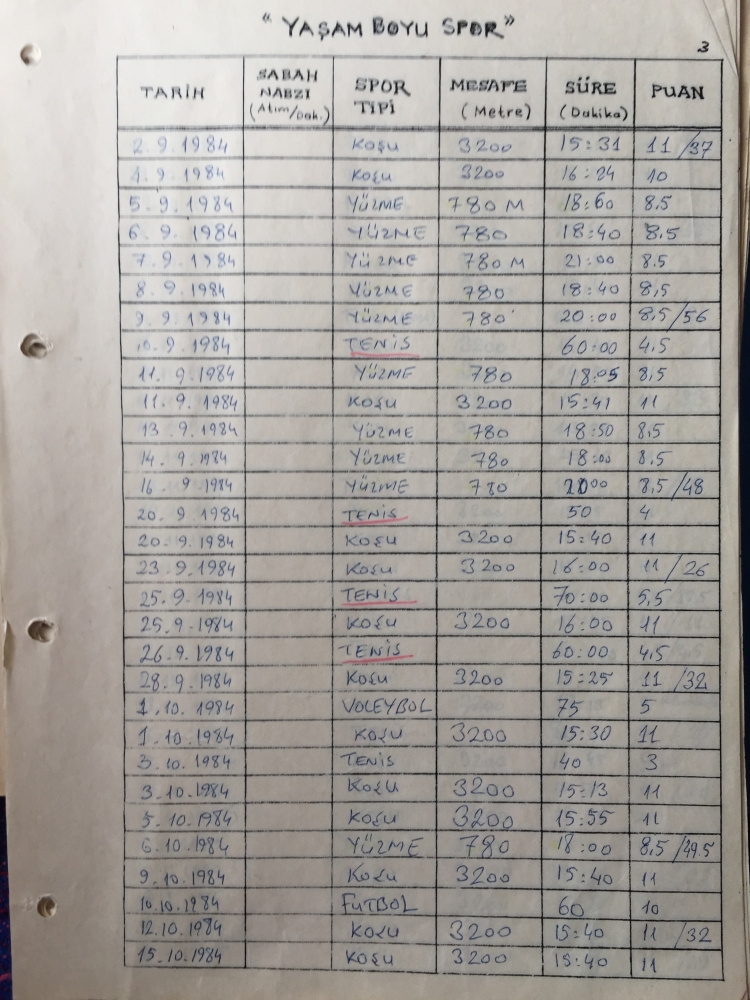 "YAŞAM BOYU SPOR"
3
TARİH SABAH NABZI (Atım/Dak.) SPOR TİPİ MESAFE (Metre) SÜRE (Dakika) PUAN
2.9.1984 KOŞU 3200 15:31 11 /37
4.9.1984 KOŞU 3200 16:24 10
5.9.1984 YÜZME 780 M 18:60 8.5
6.9.1984 YÜZME 780 18:40 8,5
7.9.1984 YÜZME 780 M 21:00 8.5
8.9.1984 YÜZME 780 18:40 8,5
9.9.1984 YÜZME 780 20:00 8,5 /56
10.9.1984 TENİS 60:00 4,5
11.9.1984 YÜZME 780 18:05 8,5
11.9.1984 KOŞU 3200 15:41 11
13.9.1984 YÜZME 780 18:50 8,5
14.9.1984 YÜZME 780 18:00 8.5
16.9.1984 YÜZME 780 8,5 /48
20.9.1984 TENİS 50 4
20.9.1984 KOŞU 3200 15:40 11
23.9.1984 KOŞU 3200 16:00 11 /26
25.9.1984 TENİS 70:00 5,5
25.9.1984 KOŞU 3200 16:00 11
26.9.1984 TENİS 60:00 4,5
28.9.1984 KOŞU 3200 15:25 11 /32
1.10.1984 VOLEYBOL 75 5
1.10.1984 KOŞU 3200 15:30 11
3.10.1984 TENİS 40 3
3.10.1984 KOŞU 3200 15:13 11
5.10.1984 KOŞU 3200 15:55 11
6.10.1984 YÜZME 780 18:00 8,5 /49.5
9.10.1984 KOŞU 3200 15:40 11
10.10.1984 FUTBOL 60 10
12.10.1984 KOŞU 3200 15:40 11 /32
15.10.1984 KOŞU 3200 15:40 11